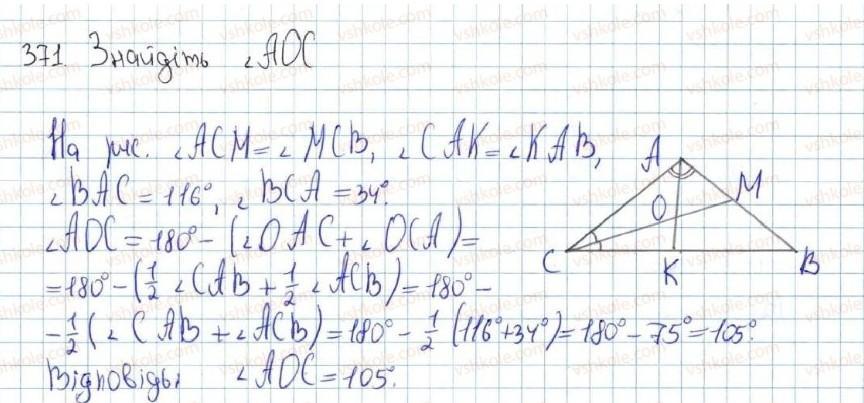 371 Знайдіть ∠AOC
На рис. ∠ACM = ∠MCB, ∠CAK = ∠KAB,
∠BAC = 116°, ∠BCA = 34°.
∠AOC = 180° - (∠OAC + ∠OCA) =
= 180° - (1/2 ∠CAB + 1/2 ∠ACB) = 180° -
- 1/2 (∠CAB + ∠ACB) = 180° - 1/2 (116° + 34°) = 180° - 75° = 105°.
Відповідь: ∠AOC = 105°.
A
M
O
C
K
B
vshkole.com